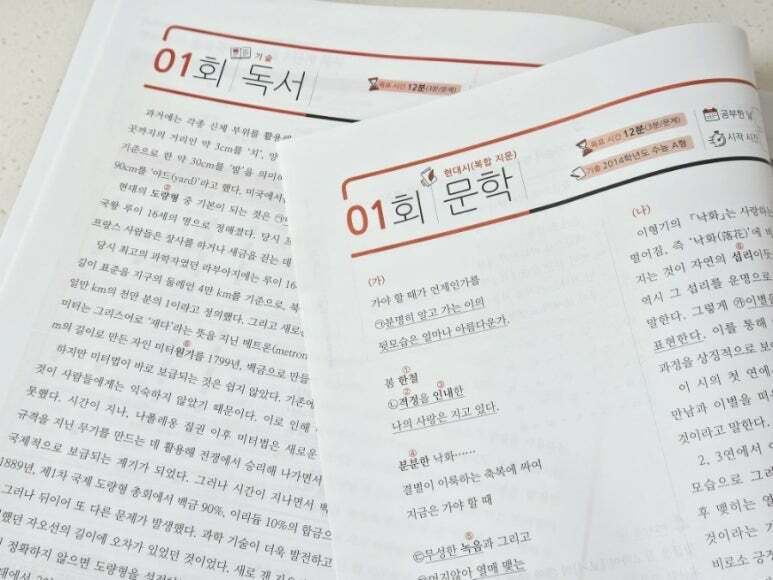 기술
01회 독서
목표 시간 12분(3분/문제)
과거에는 각종 신체 부위를 활용해
곳까지의 거리인 약 3cm를 '치', 양
기준으로 한 약 30cm를 '발'을 의미하
90cm를 '야드(yard)'라고 했다. 미국에서는
현대의 도량형 중 기본이 되는 것은
국왕 루이 16세의 명으로 정해졌다. 당시 프
프랑스 사람들은 장사를 하거나 세금을 걷는 데
당시 최고의 과학자였던 라부아지에는 루이 16
길이 표준을 지구의 둘레인 4만 km를 기준으로, 북
일만 km의 천만 분의 1이라고 정의했다. 그리고 새로
미터는 그리스어로 '재다'라는 뜻을 지닌 메트론(metron
m의 길이로 만든 자인 미터원기를 1799년, 백금으로 만들
하지만 미터법이 바로 보급되는 것은 쉽지 않았다. 기존에
것이 사람들에게는 익숙하지 않았기 때문이다. 이로 인해
못했다. 시간이 지나, 나폴레옹 집권 이후 미터법은 새로운
규격을 지닌 무기를 만드는 데 활용해 전쟁에서 승리해 나가면서
국제적으로 보급되는 계기가 되었다. 그러나 시간이 지나면서 백
1889년, 제1차 국제 도량형 총회에서 백금 90%, 이리듐 10%의 합금으
그러나 뒤이어 또 다른 문제가 발생했다. 과학 기술이 더욱 발전하고
했던 자오선의 길이에 오차가 있었던 것이었다. 새로 잰 길
정확하지 않으면 도량형을 설정
현대시(복합 지문)
01회 문학
목표 시간 12분(3분/문제)
기출 2014학년도 수능 A형
공부한 날
시작 시간
(가)
가야 할 때가 언제인가를
㉠분명히 알고 가는 이의
뒷모습은 얼마나 아름다운가.
① 
봄 한철
② ③
㉡격정을 인내한
나의 사랑은 지고 있다.
④
분분한 낙화……
결별이 이룩하는 축복에 싸여
지금은 가야 할 때
⑤
㉢무성한 녹음과 그리고
㉣머지않아 열매 맺는
(나)
이형기의 「낙화」는 사랑하는
멀어짐, 즉 '낙화(落花)'에 비
⑥
지는 것이 자연의 섭리이듯
역시 그 섭리를 운명으로
말한다. 그렇게 ㉮이별을
표현한다. 이를 통해
과정을 상징적으로 보
이 시의 첫 연에
만남과 이별을 떠
것이라고 말한다.
2, 3연에서
모습으로 그려
후 맺히는 열
것이라는
비로소 긍